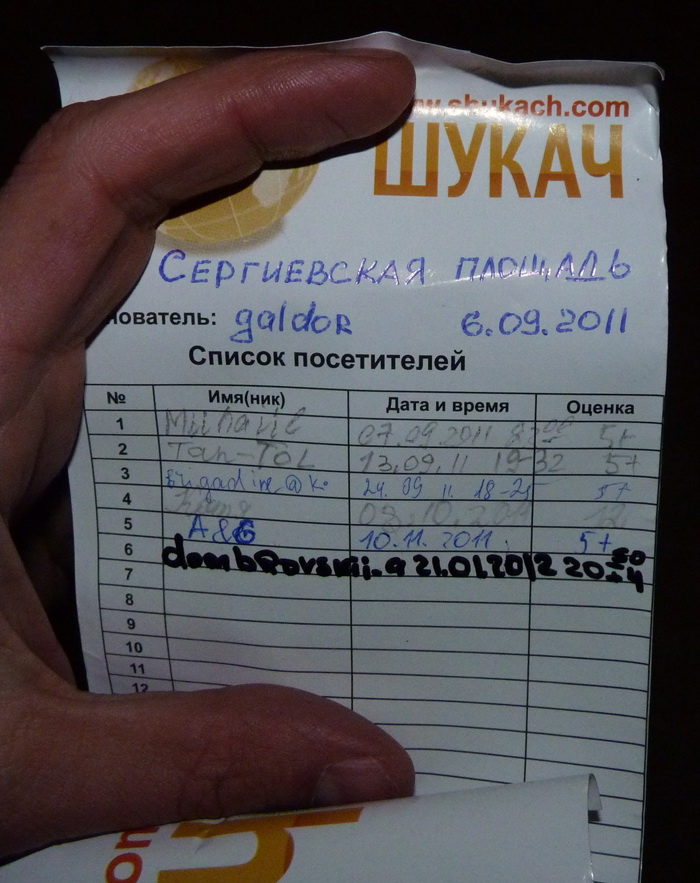 www.shukach.com
ШУКАЧ
СЕРГИЕВСКАЯ ПЛОЩАДЬ
нователь: galdor 6.09.2011
Список посетителей
№ Имя(ник) Дата и время Оценка
1 07.09.2011 5+
2 Tan-Tol 13.09.11 19-32 5+
3 Brigadir@k. 24.09 11. 18-25 5+
4 08.10.2011 12
5 A&G 10.11.2011. 5+
6 dombrovskij-a 21.01.2012 20:50 5+
7
8
9
10
11
12
on